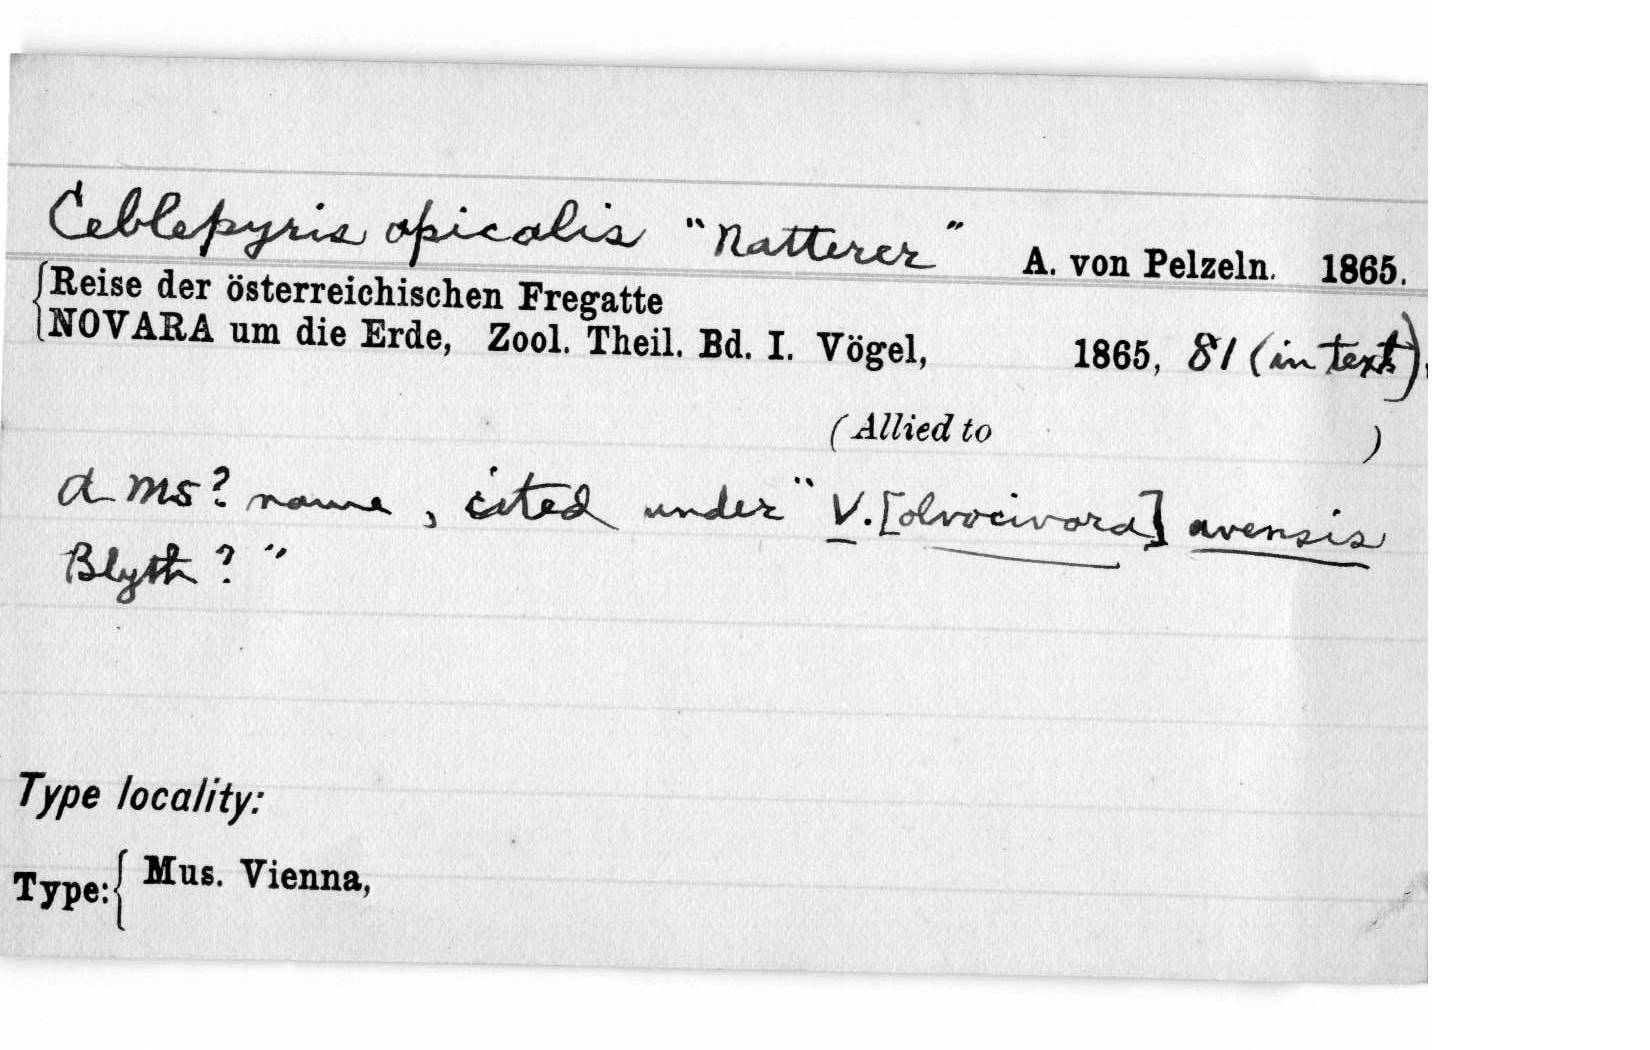 Ceblepyris apicalis "Natterer" A. von Pelzeln. 1865.
Reise der österreichischen Fregatte
NOVARA um die Erde, Zool. Theil. Bd. I. Vögel, 1865, 81 (in text).
(Allied to )
A MS? name, cited under "V. [olvocivora] avensis
Blyth?"
Type locality:
Type: Mus. Vienna,